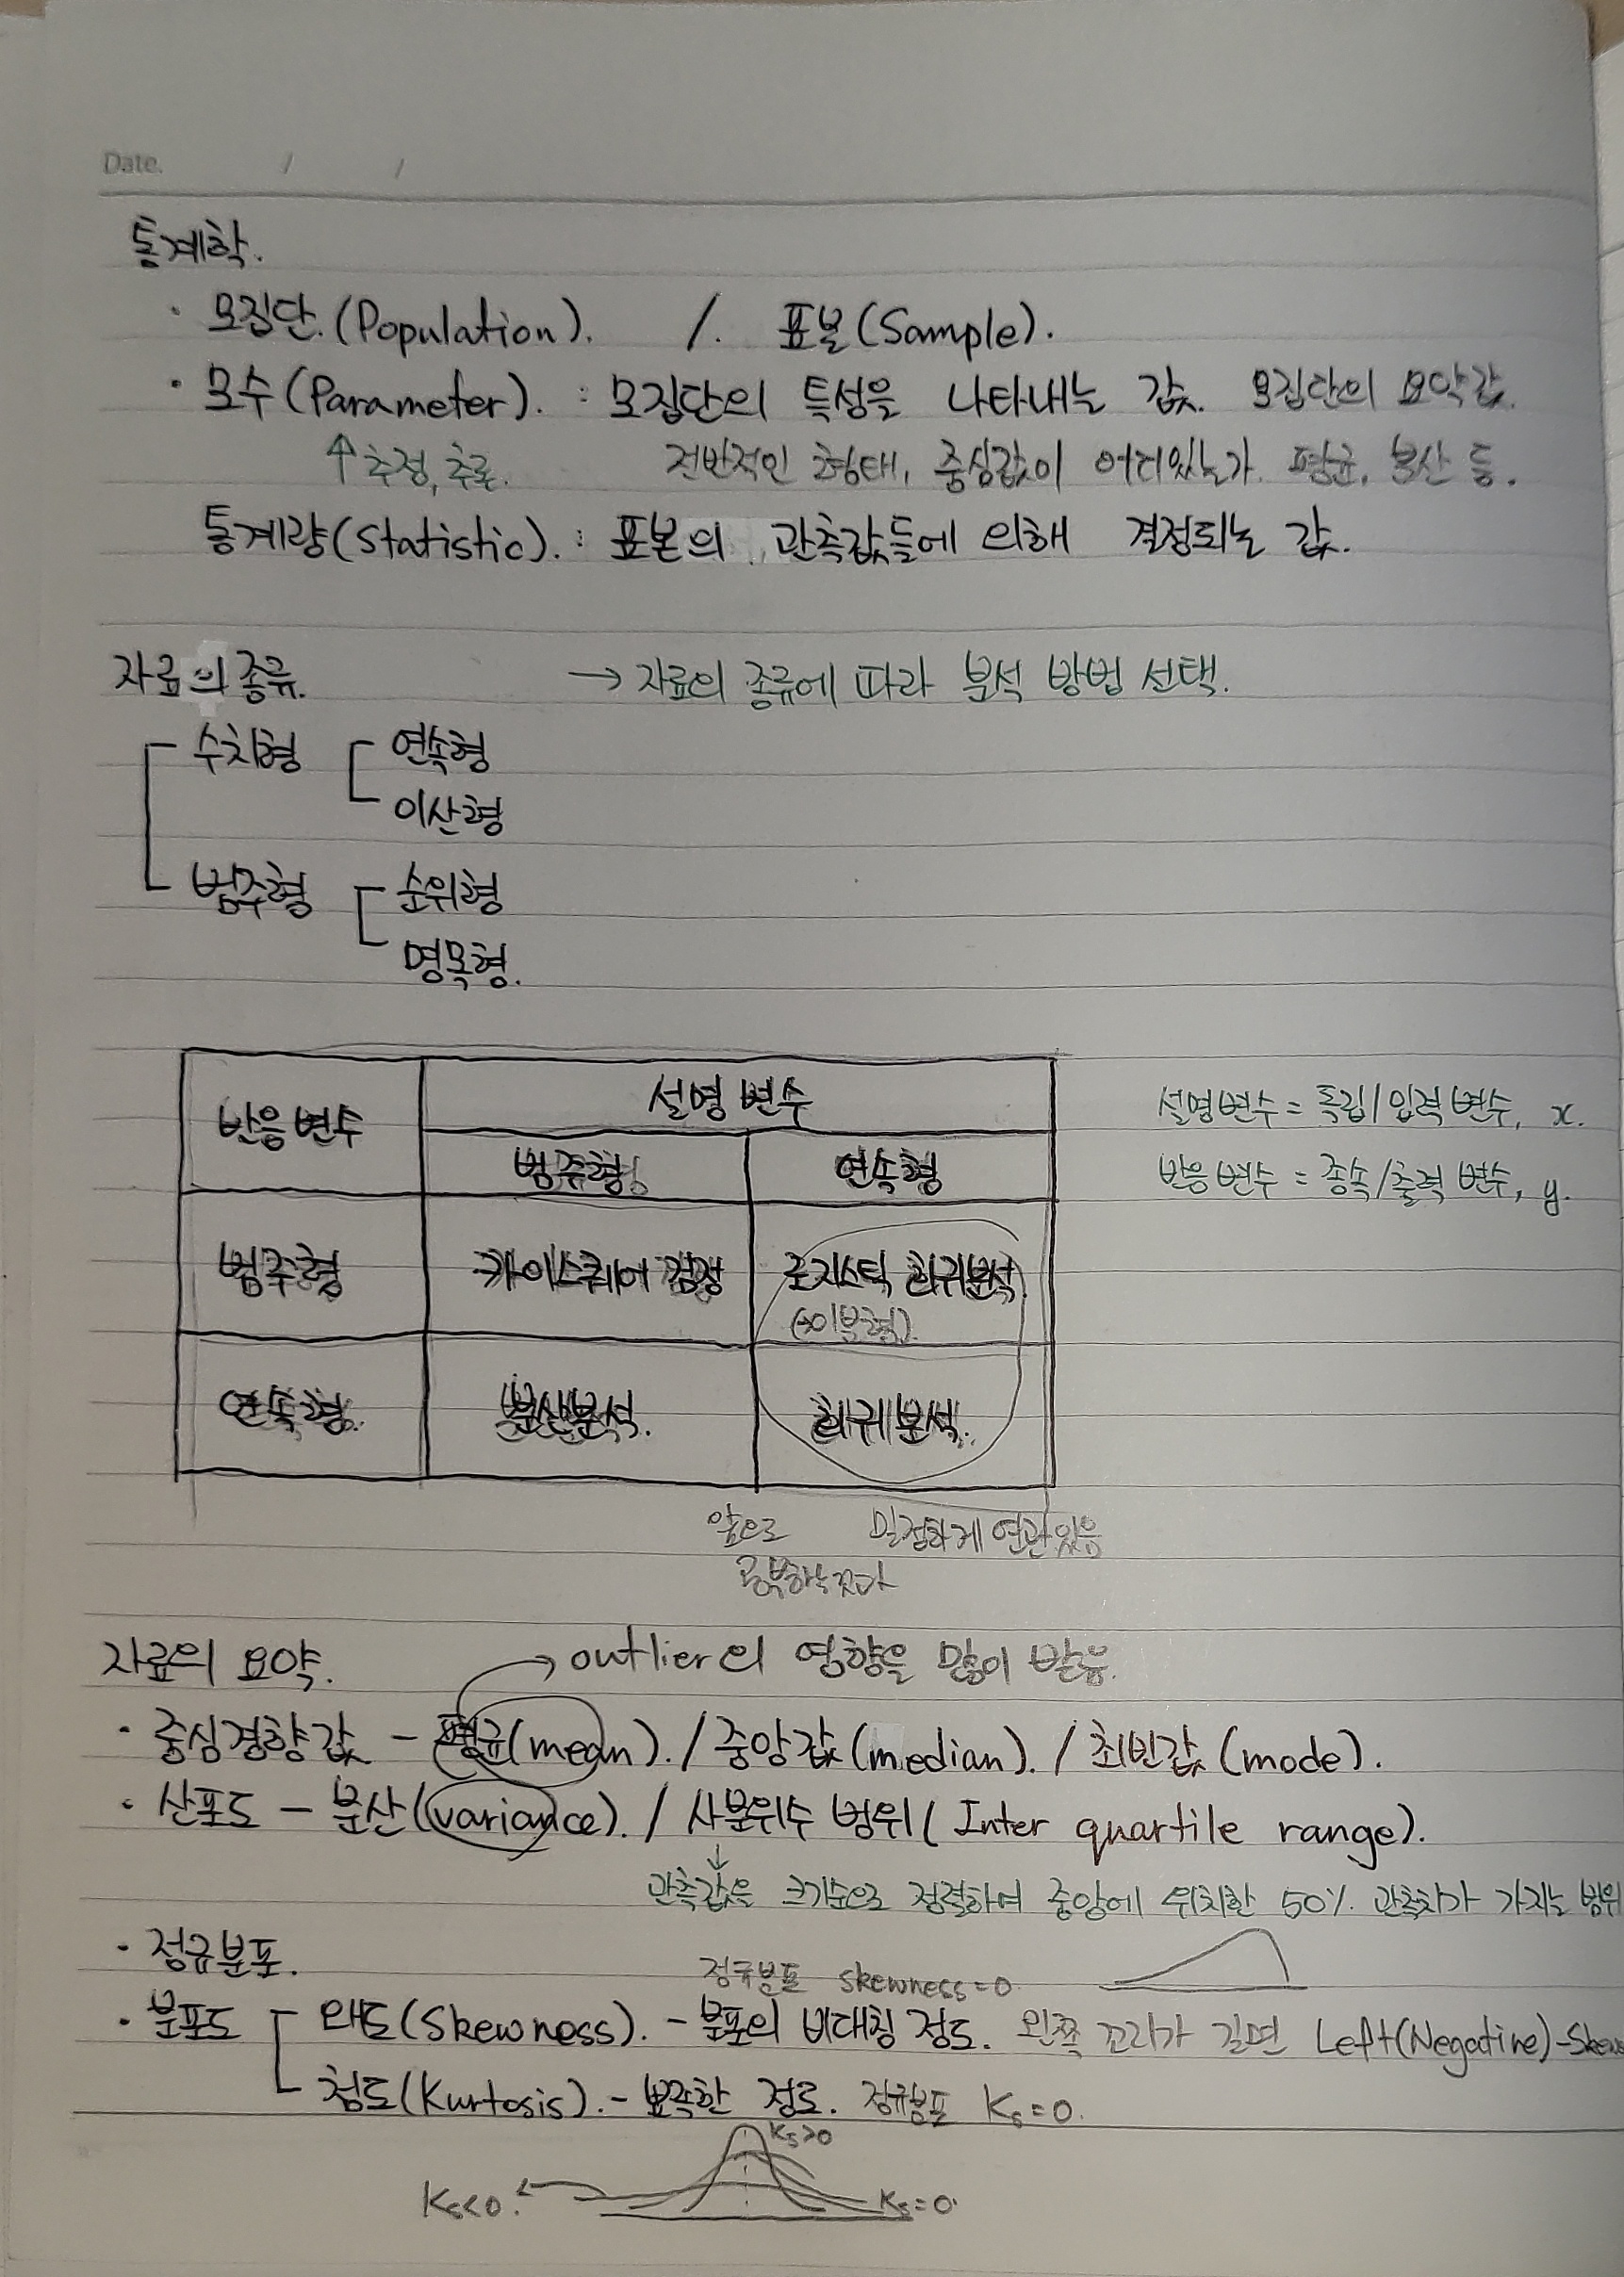 Date. / /
통계학.
· 모집단.(Population). /. 표본(Sample).
· 모수(Parameter). : 모집단의 특성을 나타내는 값. 모집단의 요약값.
↑추정, 추론. 전반적인 형태, 중심값이 어디있는가. 평균, 분산 등.
통계량(Statistic). : 표본의 관측값들에 의해 결정되는 값.
자료의 종류. → 자료의 종류에 따라 분석 방법 선택.
수치형 연속형
이산형
범주형 순위형
명목형.
반응 변수 설명 변수
설명변수 = 독립/입력 변수, x.
범주형 연속형
반응 변수 = 종속/출력 변수, y.
범주형 카이스퀘어 검정 로지스틱 회귀분석
(→이분형).
연속형. 분산분석. 회귀분석.
앞으로 밀접하게 연관있음
공부하는 것과
자료의 요약. → outlier의 영향을 많이 받음.
· 중심경향값 - 평균(mean). / 중앙값(median). / 최빈값(mode).
· 산포도 - 분산(variance). / 사분위수 범위(Inter quartile range).
↓
관측값을 크기순으로 정렬하여 중앙에 위치한 50% 관측치가 가지는 범위
· 정규분포.
정규분포 skewness=0
· 분포도 왜도(Skewness). - 분포의 비대칭 정도. 왼쪽 꼬리가 길면 Left(Negative)-Skew
첨도(Kurtosis). - 뾰족한 정도. 정규분포 Ks=0.
Ks>0
Ks<0. Ks=0.